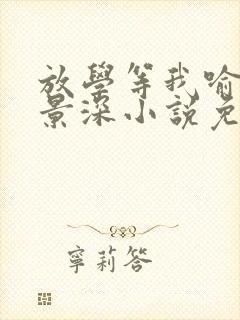 放學等我喻
景深小說免
寧莉答